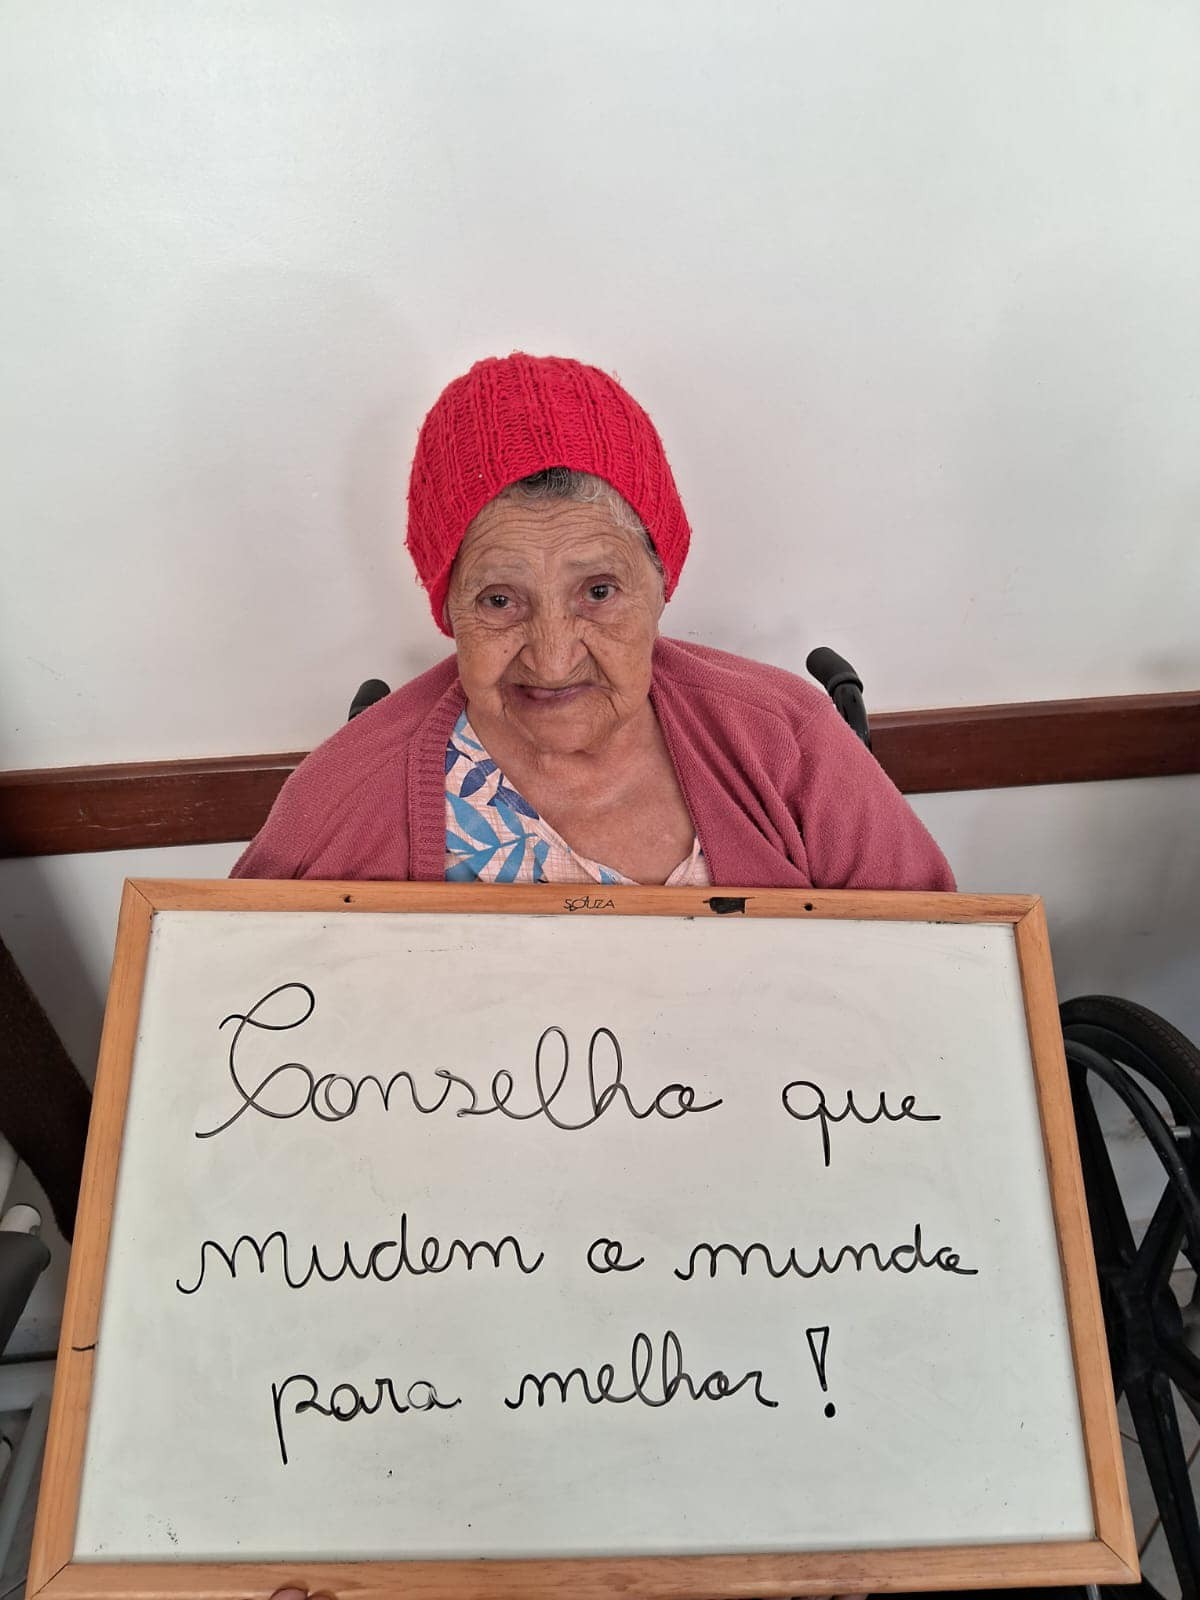 SOUZA
Conselho que
mudem o mundo
para melhor!